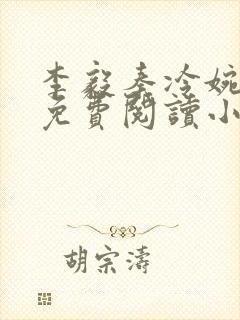 李毅秦冷婉
免費閱讀小
胡宗濤